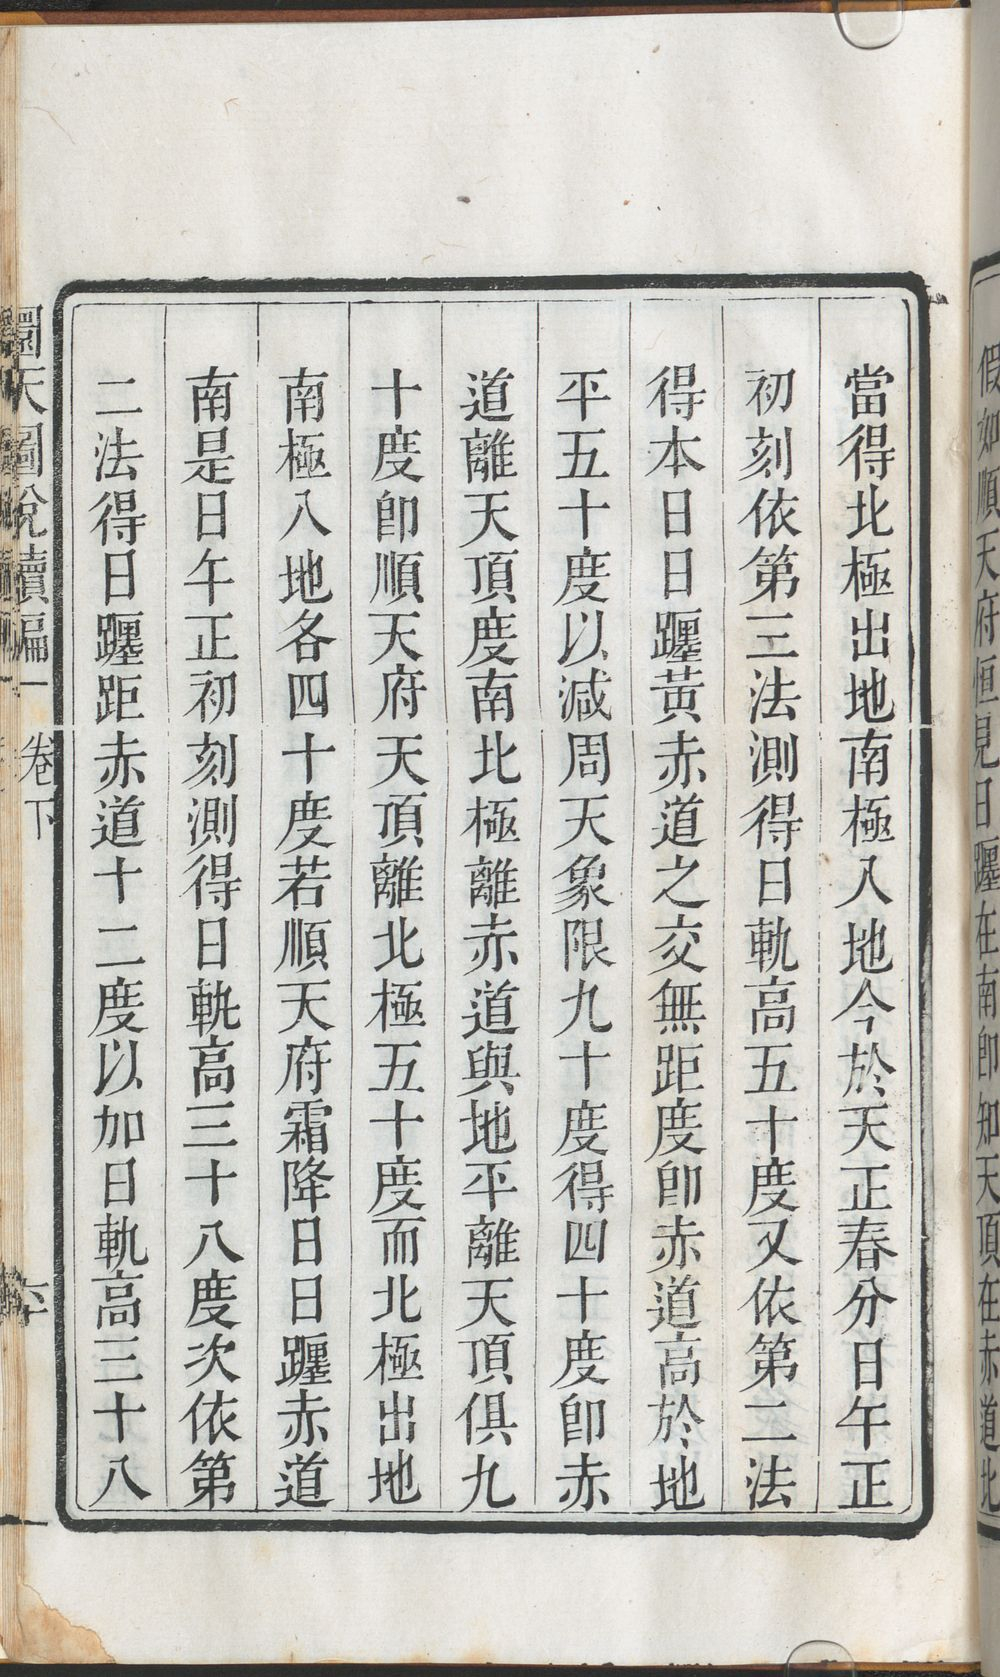 假如順天府恒見日躔在南卽知天頂在赤道北
當得北極出地南極入地今於天正春分日午正
初刻依第三法測得日軌高五十度又依第二法
得本日日躔黃赤道之交無距度卽赤道高於地
平五十度以減周天象限九十度得四十度卽赤
道離天頂度南北極離赤道與地平離天頂俱九
十度卽順天府天頂離北極五十度而北極出地
南極入地各四十度若順天府霜降日日躔赤道
南是日午正初刻測得日軌高三十八度次依第
二法得日躔距赤道十二度以加日軌高三十八
圜天圖說續編 卷下